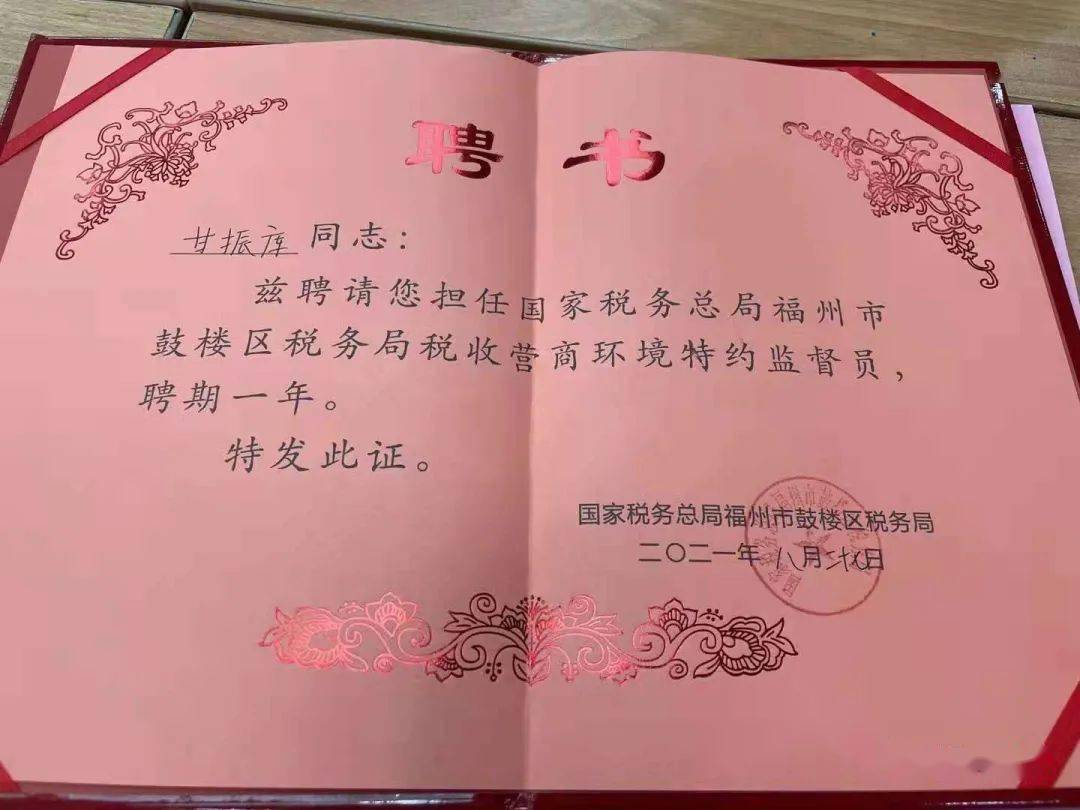 聘书
甘振库同志：
兹聘请您担任国家税务总局福州市
鼓楼区税务局税收营商环境特约监督员，
聘期一年。
特发此证。
国家税务总局福州市鼓楼区税务局
二〇二一年八月 日